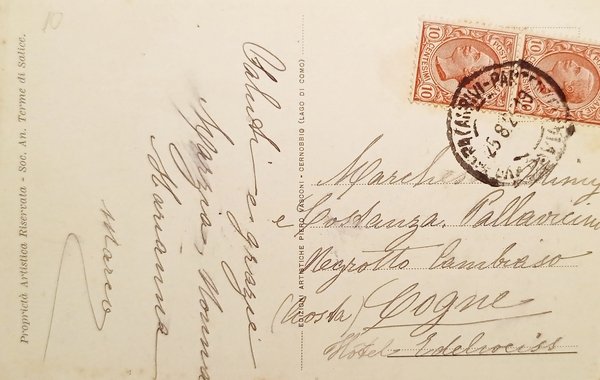 10
Proprietà Artistica Riservata - Soc. An. Terme di Salice.
Saluti e grazie
Marzia, Nonna
Marianna
Marco
EDIZIONI ARTISTICHE PIERO VASCONI - CERNOBBIO (LAGO DI COMO)
10 CENTESIMI 10
POSTE
10 CENTESIMI 10
25.8.2
e Costanza Pallavicino
Negrotto Cambiaso
(Aosta) Cogne
Hotel Edelweiss